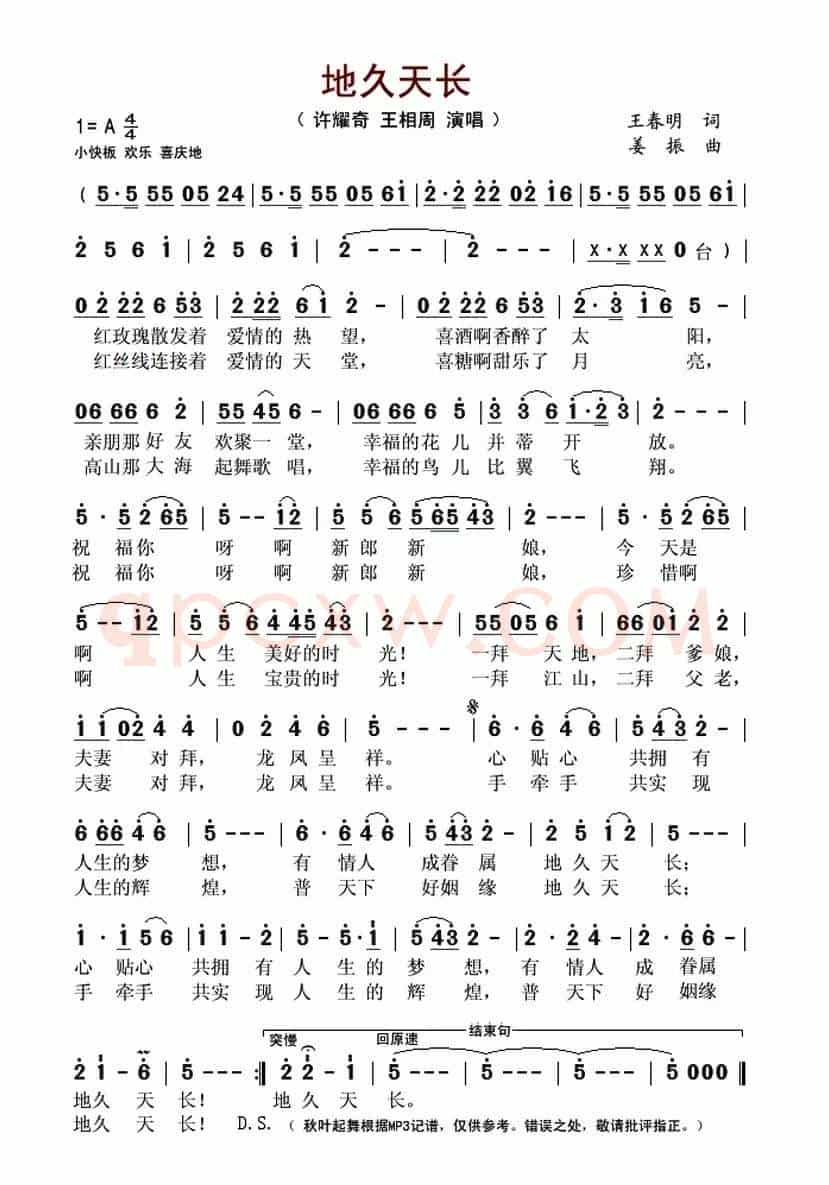 地久天长
1= A 4/4
（ 许耀奇 王相周 演唱 ）
王春明 词
小快板 欢乐 喜庆地
姜 振 曲
( 5·5 55 05 24 | 5·5 55 05 61 | 2·2 22 02 16 | 5·5 55 05 61 |
2 5 6 1 | 2 5 6 1 | 2 - - - | 2 - - - | x·x xx 0 台 )
0 2 22 6 53 | 2 22 61 2 - | 0 2 22 6 53 | 2·3 16 5 - |
红玫瑰散发着 爱情的 热 望， 喜酒啊香醉了 太 阳，
红丝线连接着 爱情的 天 堂， 喜糖啊甜乐了 月 亮，
06 66 6 2 | 55 45 6 - | 06 66 6 5 | 3 3 6 1·2 3 | 2 - - - |
亲朋那好友 欢聚一 堂， 幸福的花 儿 并 蒂 开 放。
高山那大海 起舞歌 唱， 幸福的鸟 儿 比 翼 飞 翔。
5 · 5 2 65 | 5 - - 12 | 5 5 6 5 65 43 | 2 - - - | 5 · 5 2 65 |
祝 福你 呀 啊 新 郎 新 娘， 今 天是
祝 福你 呀 啊 新 郎 新 娘， 珍 惜啊
qpcxw.COM
5 - - 12 | 5 5 6 4 45 43 | 2 - - - | 55 05 6 1 | 66 01 2 2 |
啊 人 生 美好的时 光！ 一拜 天地，二拜 爹娘，
啊 人 生 宝贵的时 光！ 一拜 江山，二拜 父老，
1 1 02 4 4 | 0 2 4 6 | 5 - - - | 6 · 6 4 6 | 5 43 2 - |
夫妻 对拜， 龙凤呈 祥。 心 贴心 共拥 有
夫妻 对拜， 龙凤呈 祥。 手 牵手 共实 现
6 66 4 6 | 5 - - - | 6 · 6 4 6 | 5 43 2 - | 2 5 12 | 5 - - - |
人生的梦 想， 有 情人 成眷 属 地 久 天 长；
人生的辉 煌， 普 天下 好姻 缘 地 久 天 长；
1 · 1 5 6 | 1 1 1 - 2 | 5 - 5·1 | 5 43 2 - | 2 · 2 1 - 2 | 2 · 6 6 - |
心 贴心 共拥 有 人 生 的 梦 想， 有 情人 成 眷属
手 牵手 共实 现 人 生 的 辉 煌， 普 天下 好 姻缘
突慢 回原速 结束句
2 1 - 6 | 5 - - - :| 2 2 - 1 | 5 - - - | 5 - - - | 5 000 |
地久 天 长！ 地 久 天 长。
地久 天 长！ D.S.（ 秋叶起舞根据MP3记谱，仅供参考。错误之处，敬请批评指正。）